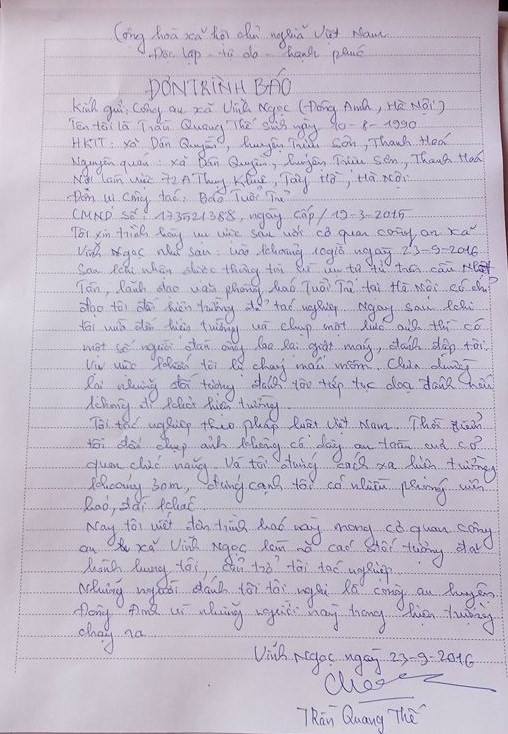 Cộng hoà xã hội chủ nghĩa Việt Nam
Độc lập - tự do - hạnh phúc
ĐƠN TRÌNH BÁO
Kính gửi, Công an xã Vĩnh Ngọc (Đông Anh, Hà Nội)
Tên tôi là Trần Quang Thế sinh ngày 10-8-1990
HKTT: xã Dân Quyền, huyện Triệu Sơn, Thanh Hoá
Nguyên quán: xã Dân Quyền, huyện Triệu Sơn, Thanh Hoá
Nơi làm việc 72A Thụy Khuê, Tây Hồ, Hà Nội
Đơn vị công tác: Báo Tuổi Trẻ
CMND số: 173521388, ngày cấp 19-3-2015
Tôi xin trình báo vụ việc sau với cơ quan công an xã
Vĩnh Ngọc như sau: vào khoảng 10 giờ ngày 23-9-2016
Sau khi nhận được thông tin từ vụ tự tử trên cầu Nhật
Tân, lãnh đạo văn phòng báo Tuổi Trẻ tại Hà Nội có chỉ
đạo tôi đến hiện trường để tác nghiệp. Ngay sau khi
tôi vừa đến hiện trường và chụp một bức ảnh thì có
một số người đàn ông lao lại giật máy, đánh đập tôi.
Vụ việc khiến tôi bị chảy máu mồm. Chưa dừng
lại những đối tượng đánh tôi tiếp tục doạ đánh nếu
không đi khỏi hiện trường.
Tôi tác nghiệp theo pháp luật Việt Nam. Thời điểm
tôi đến chụp ảnh không có dây an toàn của cơ
quan chức năng. Và tôi đứng cách xa hiện trường
khoảng 30m, đứng cạnh tôi có nhiều phóng viên
báo, đài khác.
Nay tôi viết đơn trình báo này mong cơ quan công
an xã Vĩnh Ngọc làm rõ các đối tượng đã
hành hung tôi, cản trở tôi tác nghiệp.
Những người đánh tôi tôi nghi là công an huyện
Đông Anh vì những người này trong hiện trường
chạy ra.
Vĩnh Ngọc ngày 23-9-2016
Trần Quang Thế